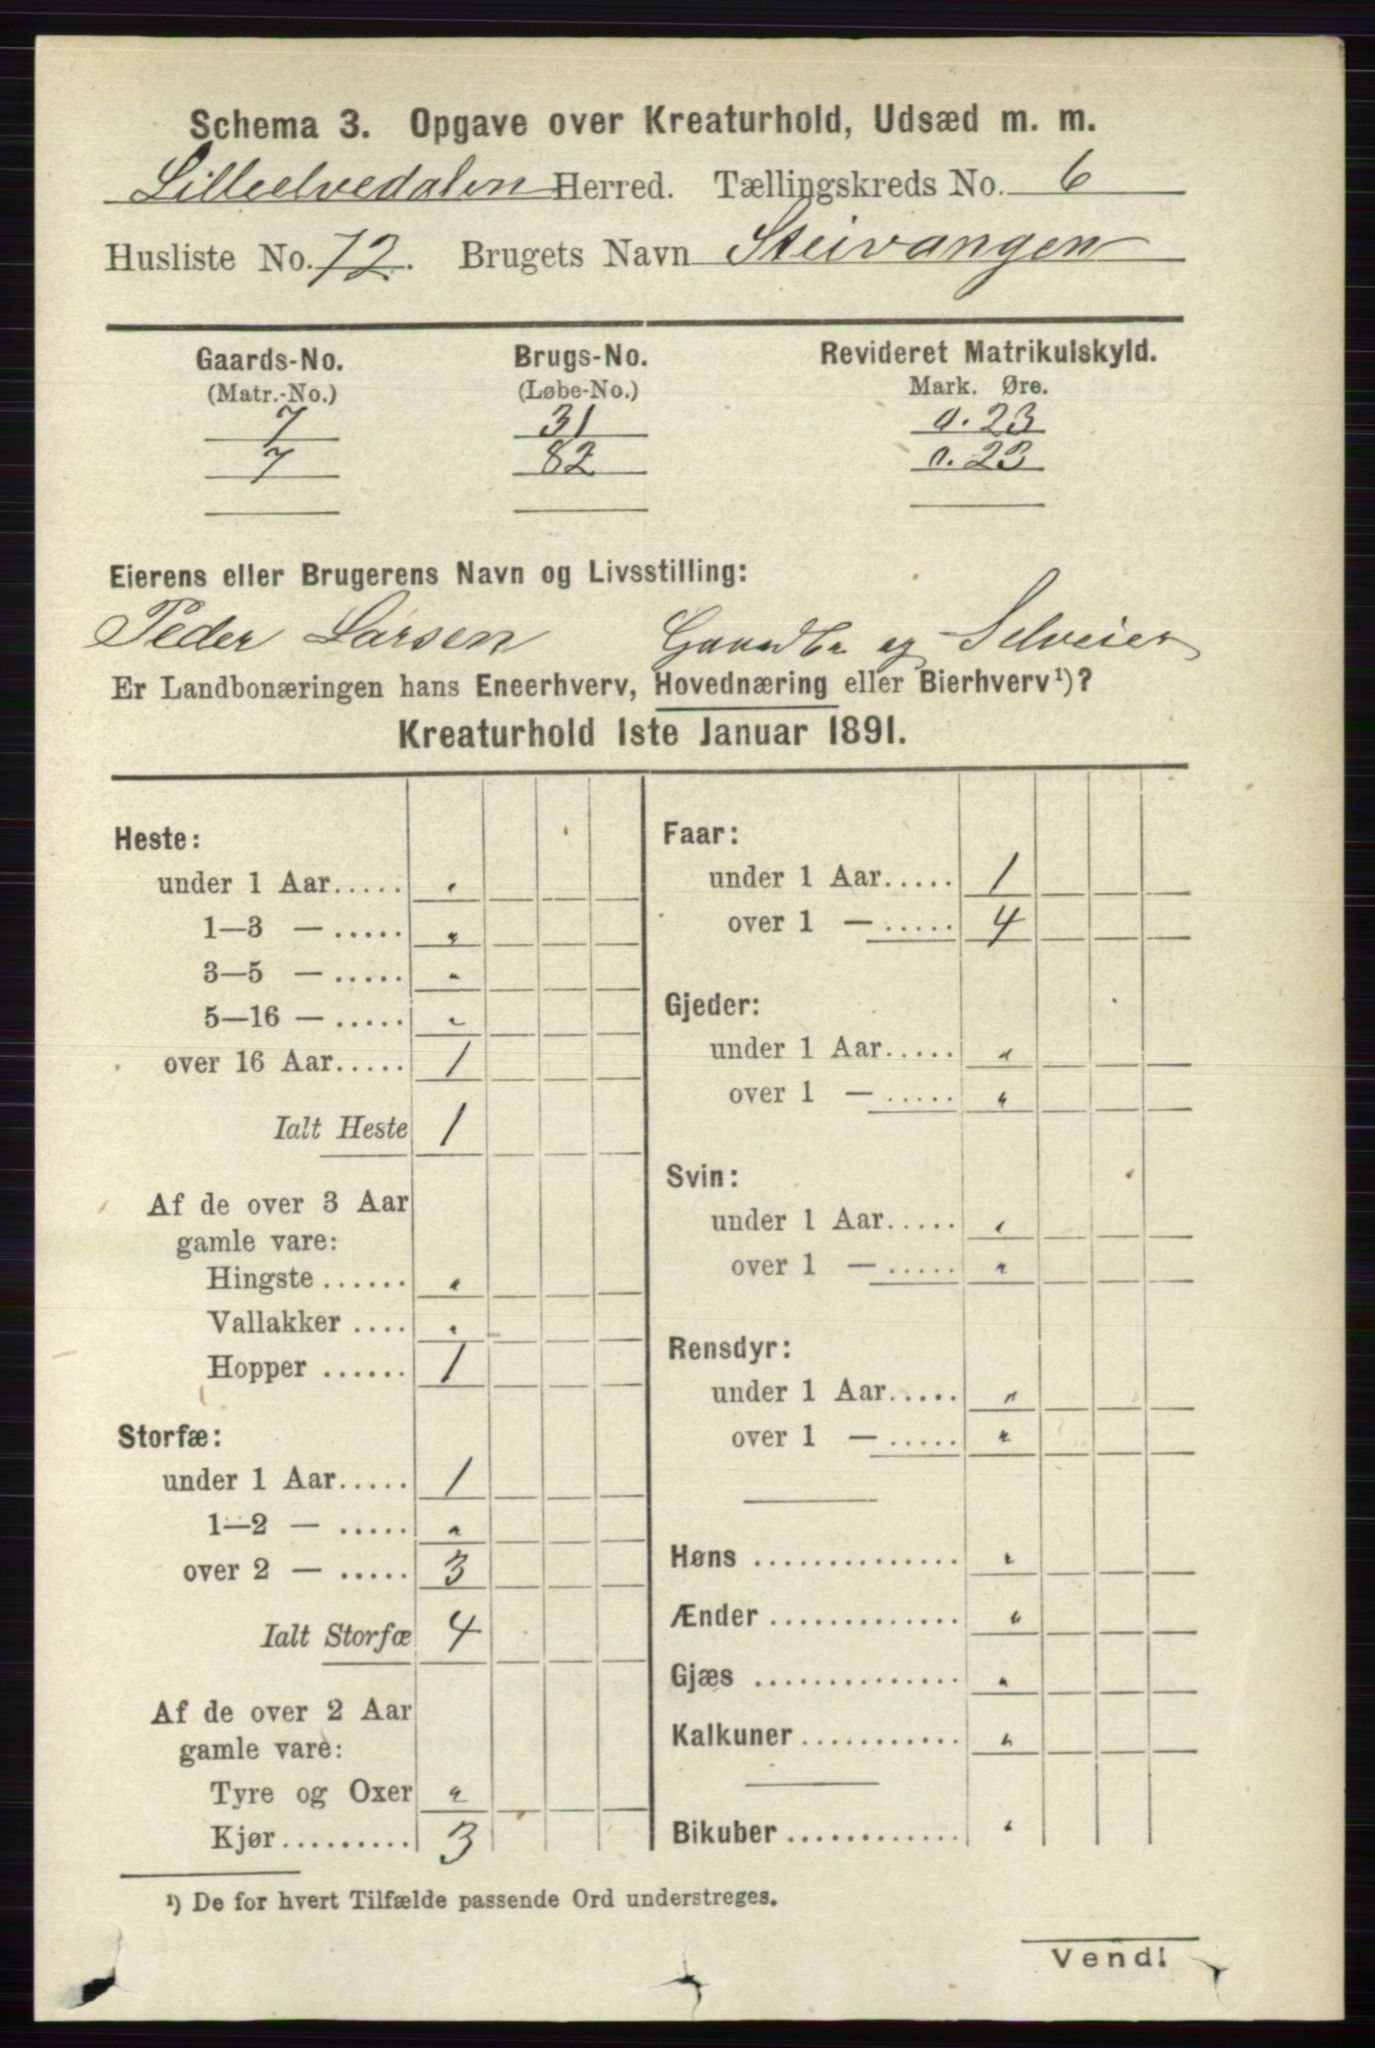 Schema 3. Opgave over Kreaturhold, Udsæd m. m.
Lilleelvedalen Herred. Tællingskreds No. 6
Husliste No. 72. Brugets Navn Steivangen
Gaards-No. Brugs-No. Revideret Matrikulskyld.
(Matr.-No.) (Løbe-No.) Mark. Øre.
7 31 0.23
7 82 0.23
Eierens eller Brugerens Navn og Livsstilling:
Peder Larsen Gaardbr og Selveier
Er Landbonæringen hans Eneerhverv, Hovednæring eller Bierhverv¹)?
Kreaturhold 1ste Januar 1891.
Heste:
under 1 Aar..... "
1—3 — ..... "
3—5 — ..... "
5—16 — ..... "
over 16 Aar..... 1
Ialt Heste 1
Af de over 3 Aar
gamle vare:
Hingste ...... "
Vallakker .... "
Hopper ...... 1
Storfæ:
under 1 Aar..... 1
1—2 — ..... "
over 2 — ..... 3
Ialt Storfæ 4
Af de over 2 Aar
gamle vare:
Tyre og Oxer "
Kjør......... 3
Faar:
under 1 Aar..... 1
over 1 — ..... 4
Gjeder:
under 1 Aar..... "
over 1 — ..... "
Svin:
under 1 Aar..... "
over 1 — ..... "
Rensdyr:
under 1 Aar..... "
over 1 — ..... "
Høns .............. "
Ænder ............. "
Gjæs .............. "
Kalkuner........... "
Bikuber ............ "
¹) De for hvert Tilfælde passende Ord understreges.
Vend!